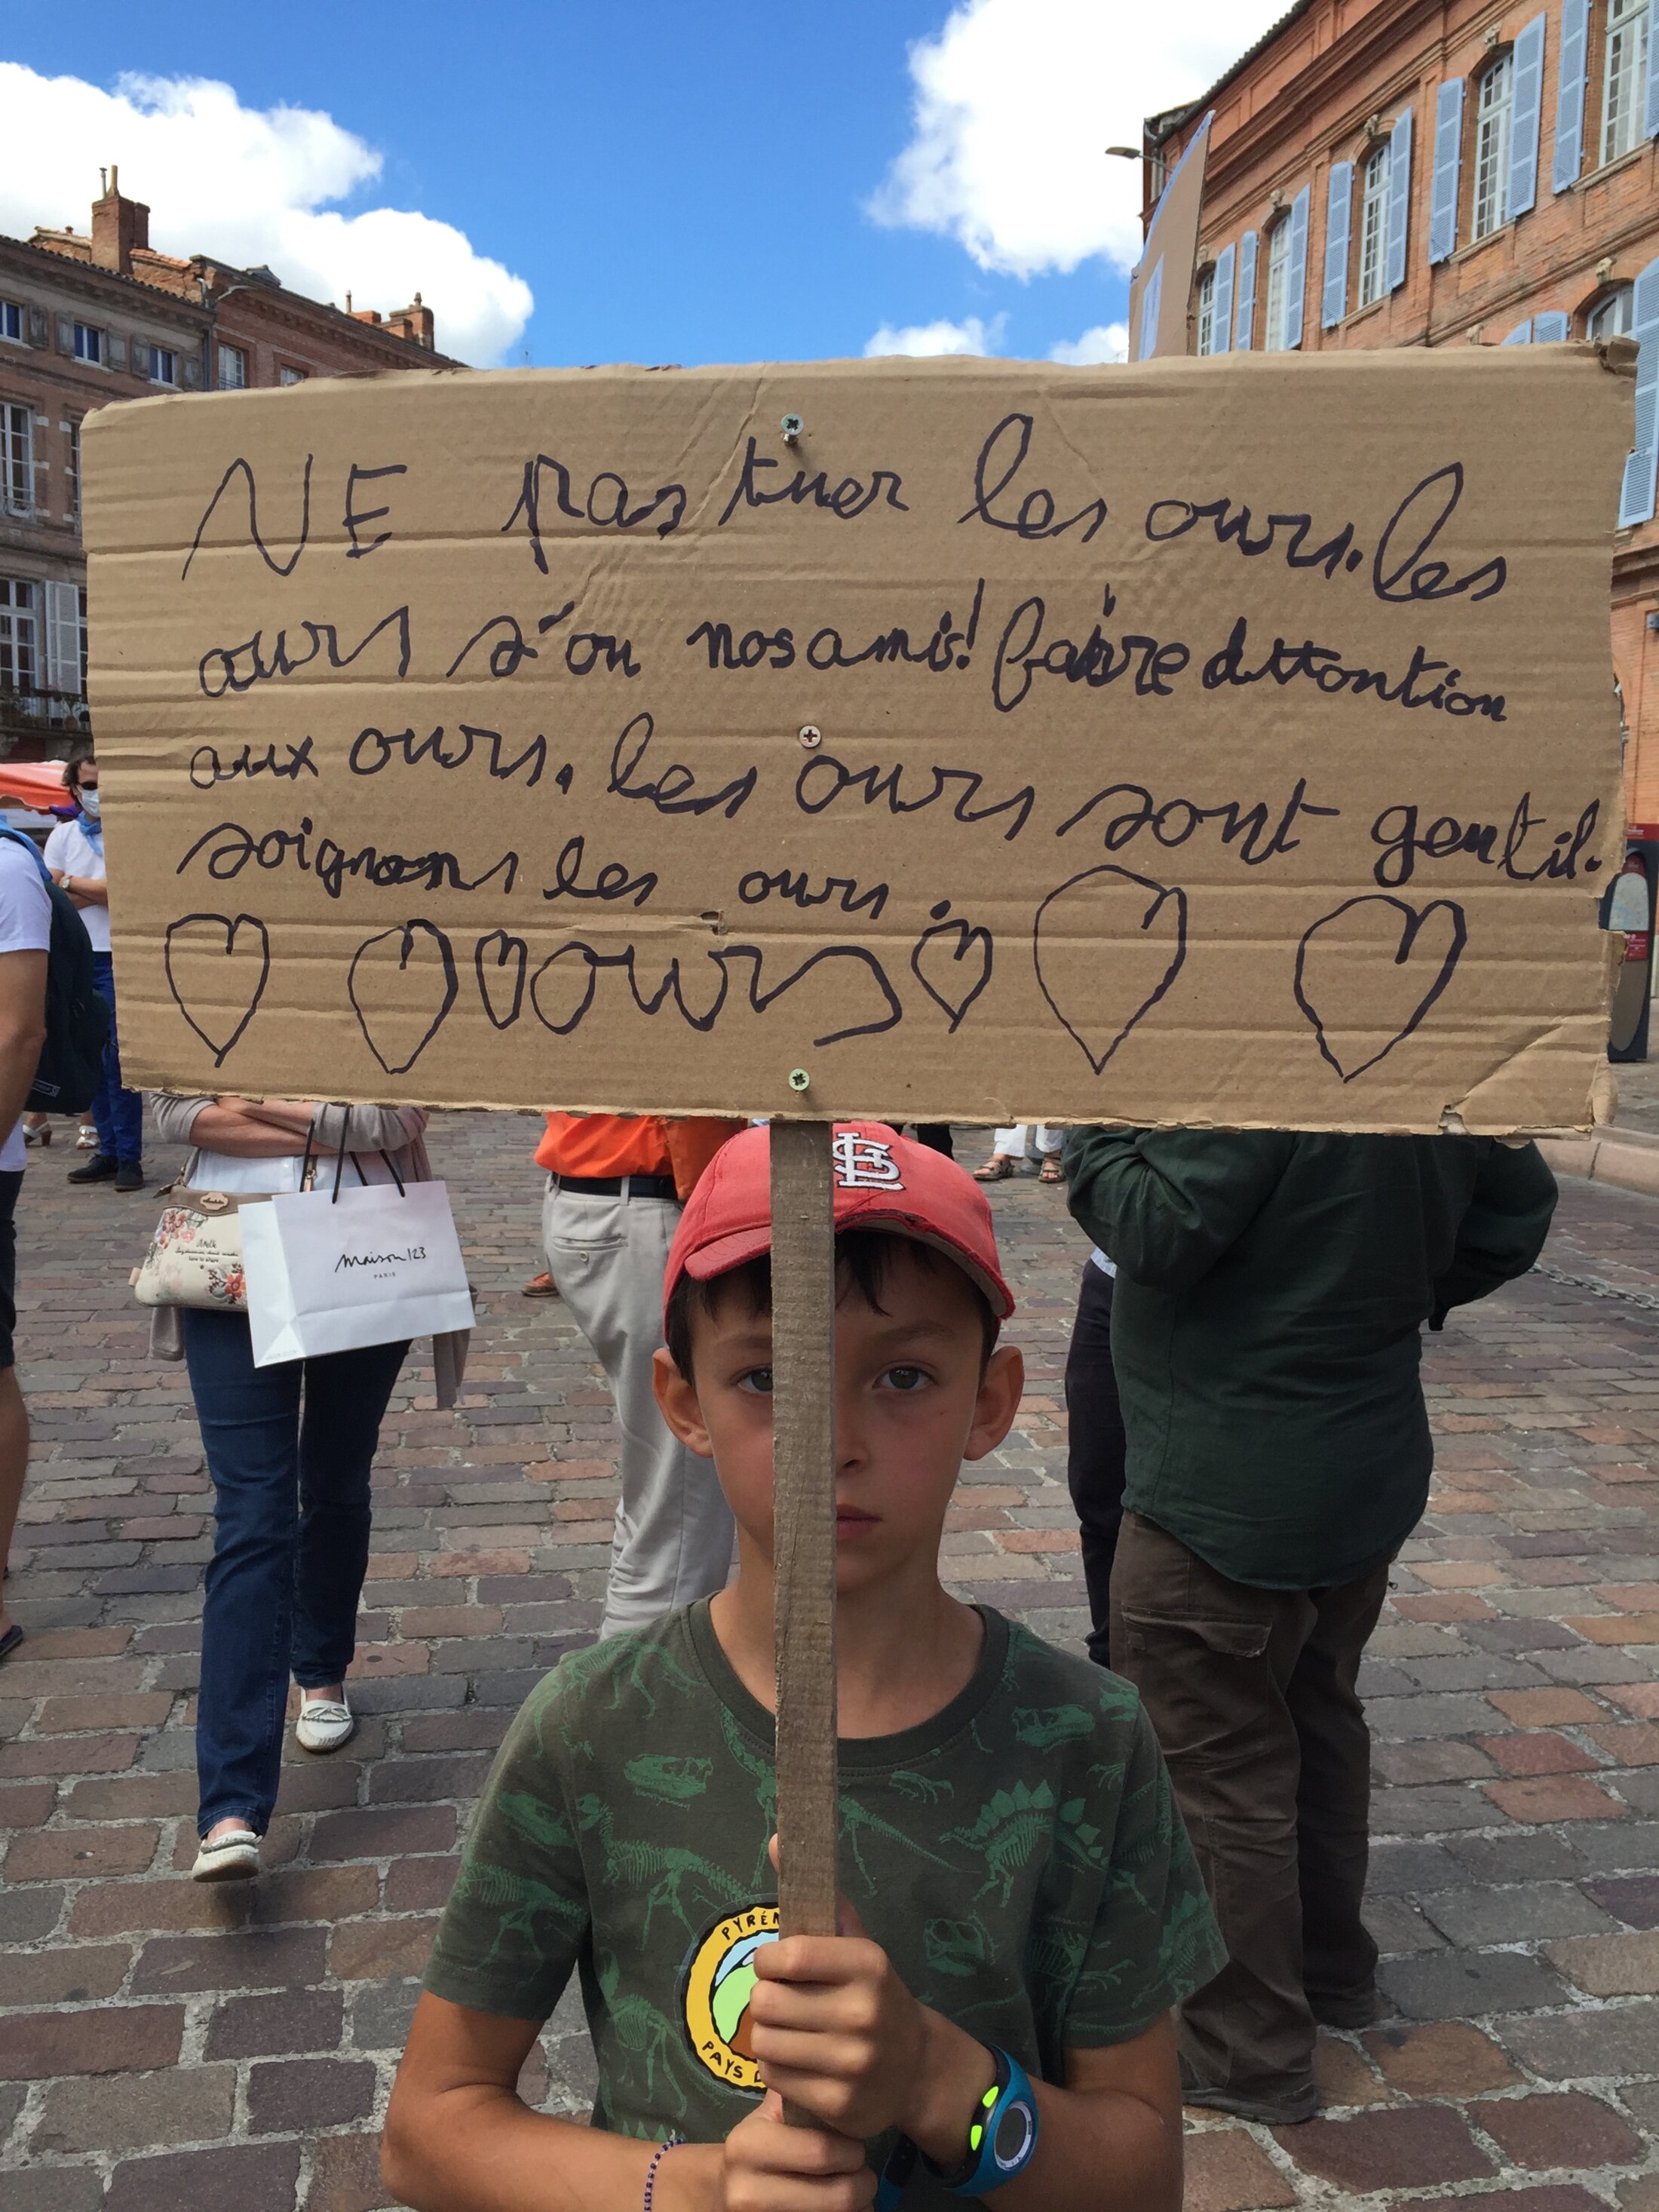 NE pas tuer les ours. les
ours s'on nos amis! faire attontion
aux ours. les ours sont gentil.
soignons les ours.
ours
maison 123
PARIS
STL
PYRÉN
PAYS D